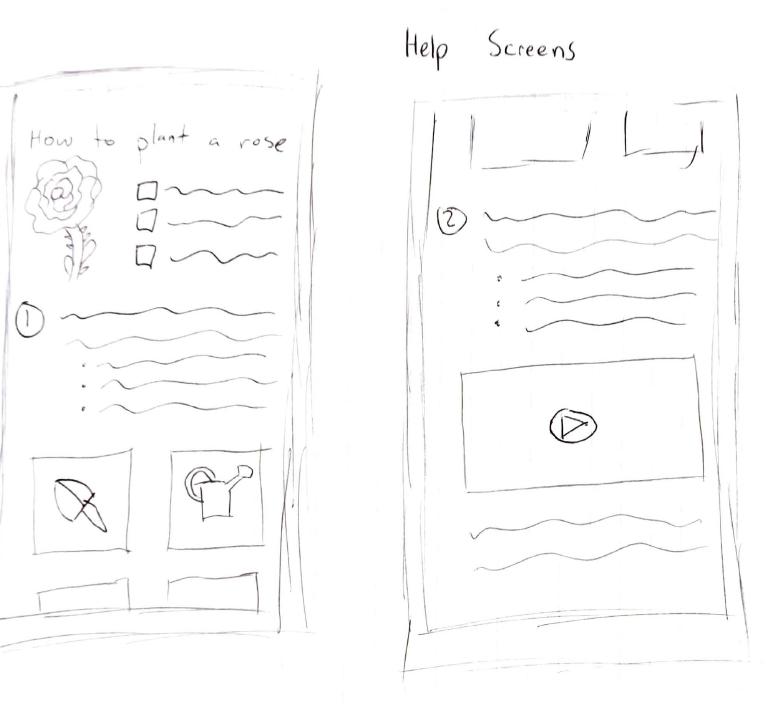 Help Screens
How to plant a rose
1
2